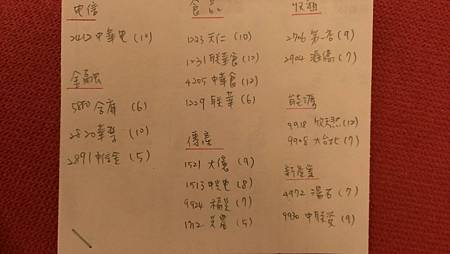 電信
2412 中華電 (10)
金融
5880 合庫 (6)
2820 華票 (10)
2891 中信金 (5)
食品
1233 天仁 (10)
1231 聯華食 (12)
4205 中華食 (12)
1229 聯華 (6)
傳產
1521 大億 (9)
1513 中興電 (8)
9924 福興 (7)
1712 興農 (5)
收租
2706 第一店 (9)
2904 匯僑 (7)
能源
9918 欣天然 (12)
9908 大台北 (7)
新產業
4972 湯石 (7)
9930 中聯資 (9)